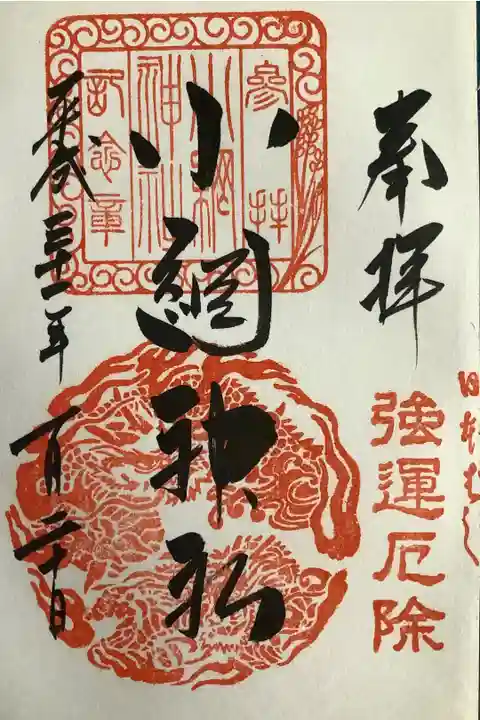 奉拝
強運厄除
小網神社
参拝
小網
神社
記念章
平成三十一年
一月二十日